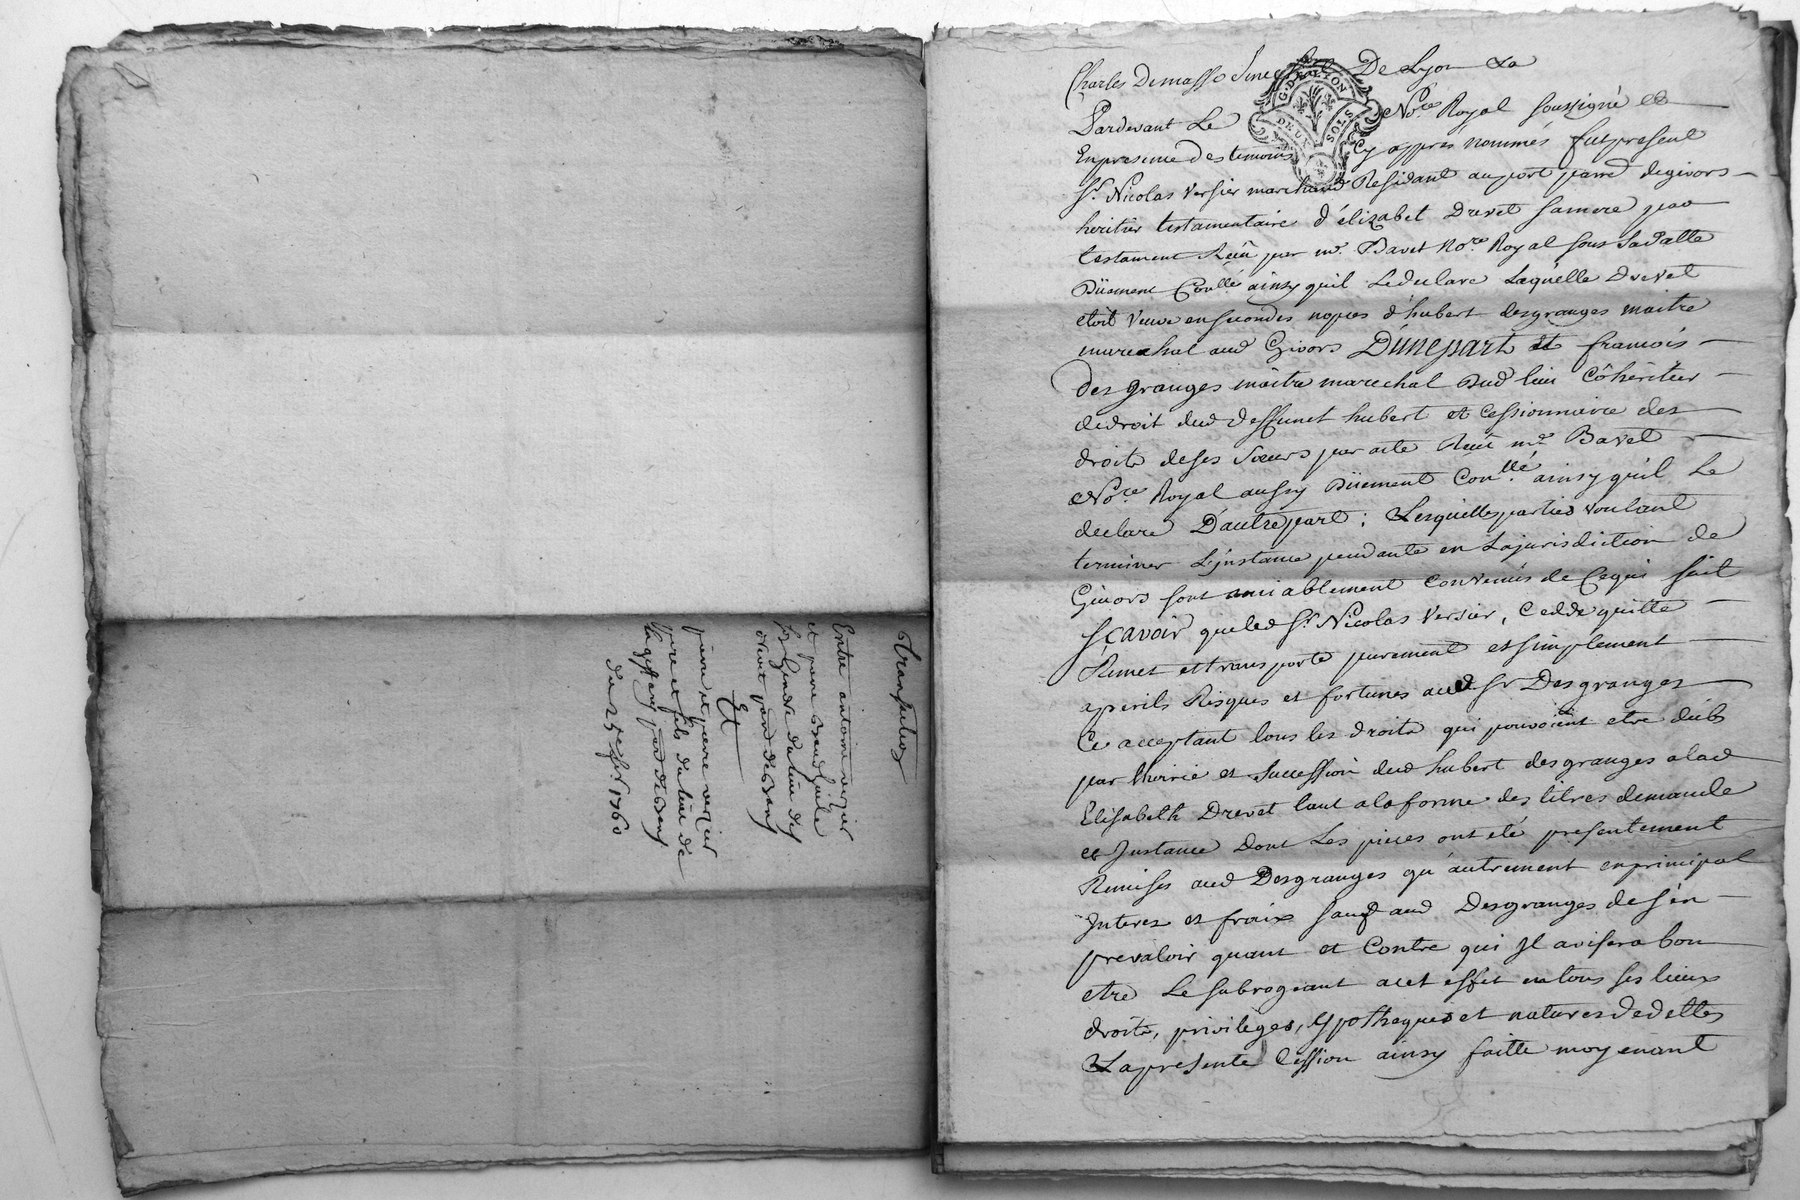 Transaction
Entre antoine verzier
et pierre
Et
pierre verzier
pere et fils du lieu de
du 25 1760
Charles Demasso De Lyon La
G. DE LYON
DEUX SOLS
Pardevant Le No.re Royal soussigné et
En presence des temoins Cy apprés nommés fut present
Sr. Nicolas Versier marchand Residant au port parr. de givors
heritier testamentaire d'élizabet Drevet sa mere par
testament Reçû par me. Bavet No.re Royal sous sa datte
Düement Conllé. ainsy quil Le declare Laquelle Drevet
etoit Veuve en secondes nopces d'hubert desgranges maitre
marechal aud Givors D'une part et francois
des granges maitre marechal Dud lieu Cohéritier
de droit dud deffunct hubert et Cessionnaire des
droits de ses Soeurs par acte Reçû me. Bavet
No.re Royal aussy Düement Conllé. ainsy quil Le
declare D'autre part; Lesquelles parties voulant
terminer L'instance pendante en La jurisdiction de
Givors sont amiablement Convenües de Ce qui suit
Sçavoir que led Sr. Nicolas Versier, Cedde quitte
Remet et transporte purement et simplement
a perils Risques et fortunes aud Sr Desgranges
Ce acceptant tous les droits qui pouvoient etre dübs
par lhoirie et Succession dud hubert desgranges a lad
Elisabeth Drevet tant a la forme des titres demande
et Instance dont Les pieces ont eté presentement
Remises aud Desgranges qu'autrement en principal
Interets et fraix sauf aud Desgranges de s'en
prevaloir quant et Contre qui Il avisera bon
etre Le subrogeant a cet effet en tous ses lieux
droits, privilèges, ypotheques et natures de dettes
La presente Cession ainsy faitte moyenant